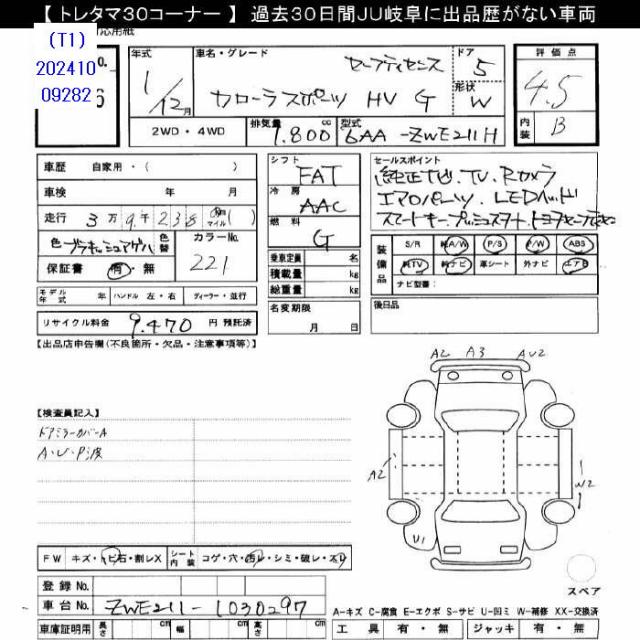 【 トレタマ30コーナー 】 過去30日間JU岐阜に出品歴がない車両
応用紙
(T1)
202410
09282
o.
6
年式
車名・グレード
ドア
評価点
セーフティセンス
5
1/12月
カローラスポーツ HV G
形状
W
4.5
2WD・4WD
排気量
1.800 cc
型式
6AA-ZWE211H
内装
B
車歴 自家用・( )
車検 年 月
走行 3万9千238 km マイル( )
色 ブラキッシュアゲハ 色替
カラーNo.
221
保証書 有・無
モデル年式 年 ハンドル 左・右 ディーラー・並行
リサイクル料金 9.470 円 預託済
シフト
FAT
冷房
AAC
燃料
G
乗車定員 名
積載量 kg
総重量 kg
名変期限
月 日
セールスポイント
純正ナビ.TV.Rカメラ
エアロパーツ.LEDヘッド
スマートキー.プッシュスタート.トヨタセーフティセンス
装備品
S/R 純A/W P/S P/W ABS
純TV 純ナビ 革シート 外ナビ エアB
ナビ型番:
後日品
【出品店申告欄(不良箇所・欠品・注意事項等)】
【検査員記入】
ドアミラーカバーA
A・U・P波
A2 A3 AU2
A2
W2
U1
FW キズ・トビ石・割レX
シート内装 コゲ・穴・汚レ・シミ・破レ・スレ
登録No.
車台No. ZWE211-1030297
車庫証明用 長さ cm 幅 cm 高さ cm
スペア
A-キズ C-腐食 E-エクボ S-サビ U-凹ミ W-補修 XX-交換済
工具 有・無 ジャッキ 有・無